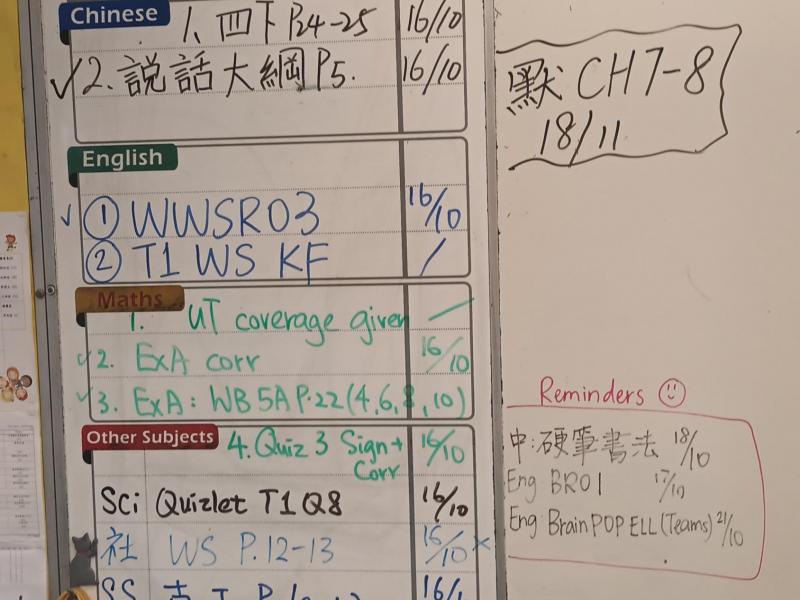 Chinese
1. 四下 P.24-25 16/10
✓ 2. 説話大綱 P5. 16/10
English
✓ ① WWSR03 16/10
② T1 WS KF /
Maths
1. UT coverage given —
✓ 2. ExA corr 16/10
✓ 3. ExA: WB 5A P.22 (4, 6, 8, 10)
Other Subjects
4. Quiz 3 Sign + Corr 16/10
Sci Quizlet T1 Q8 16/10
社 WS P.12-13 16/10 ×
SS
默 CH 7-8
18/11
Reminders ☺
中: 硬筆書法 18/10
Eng BR01 17/10
Eng: BrainPOP ELL (Teams) 21/10